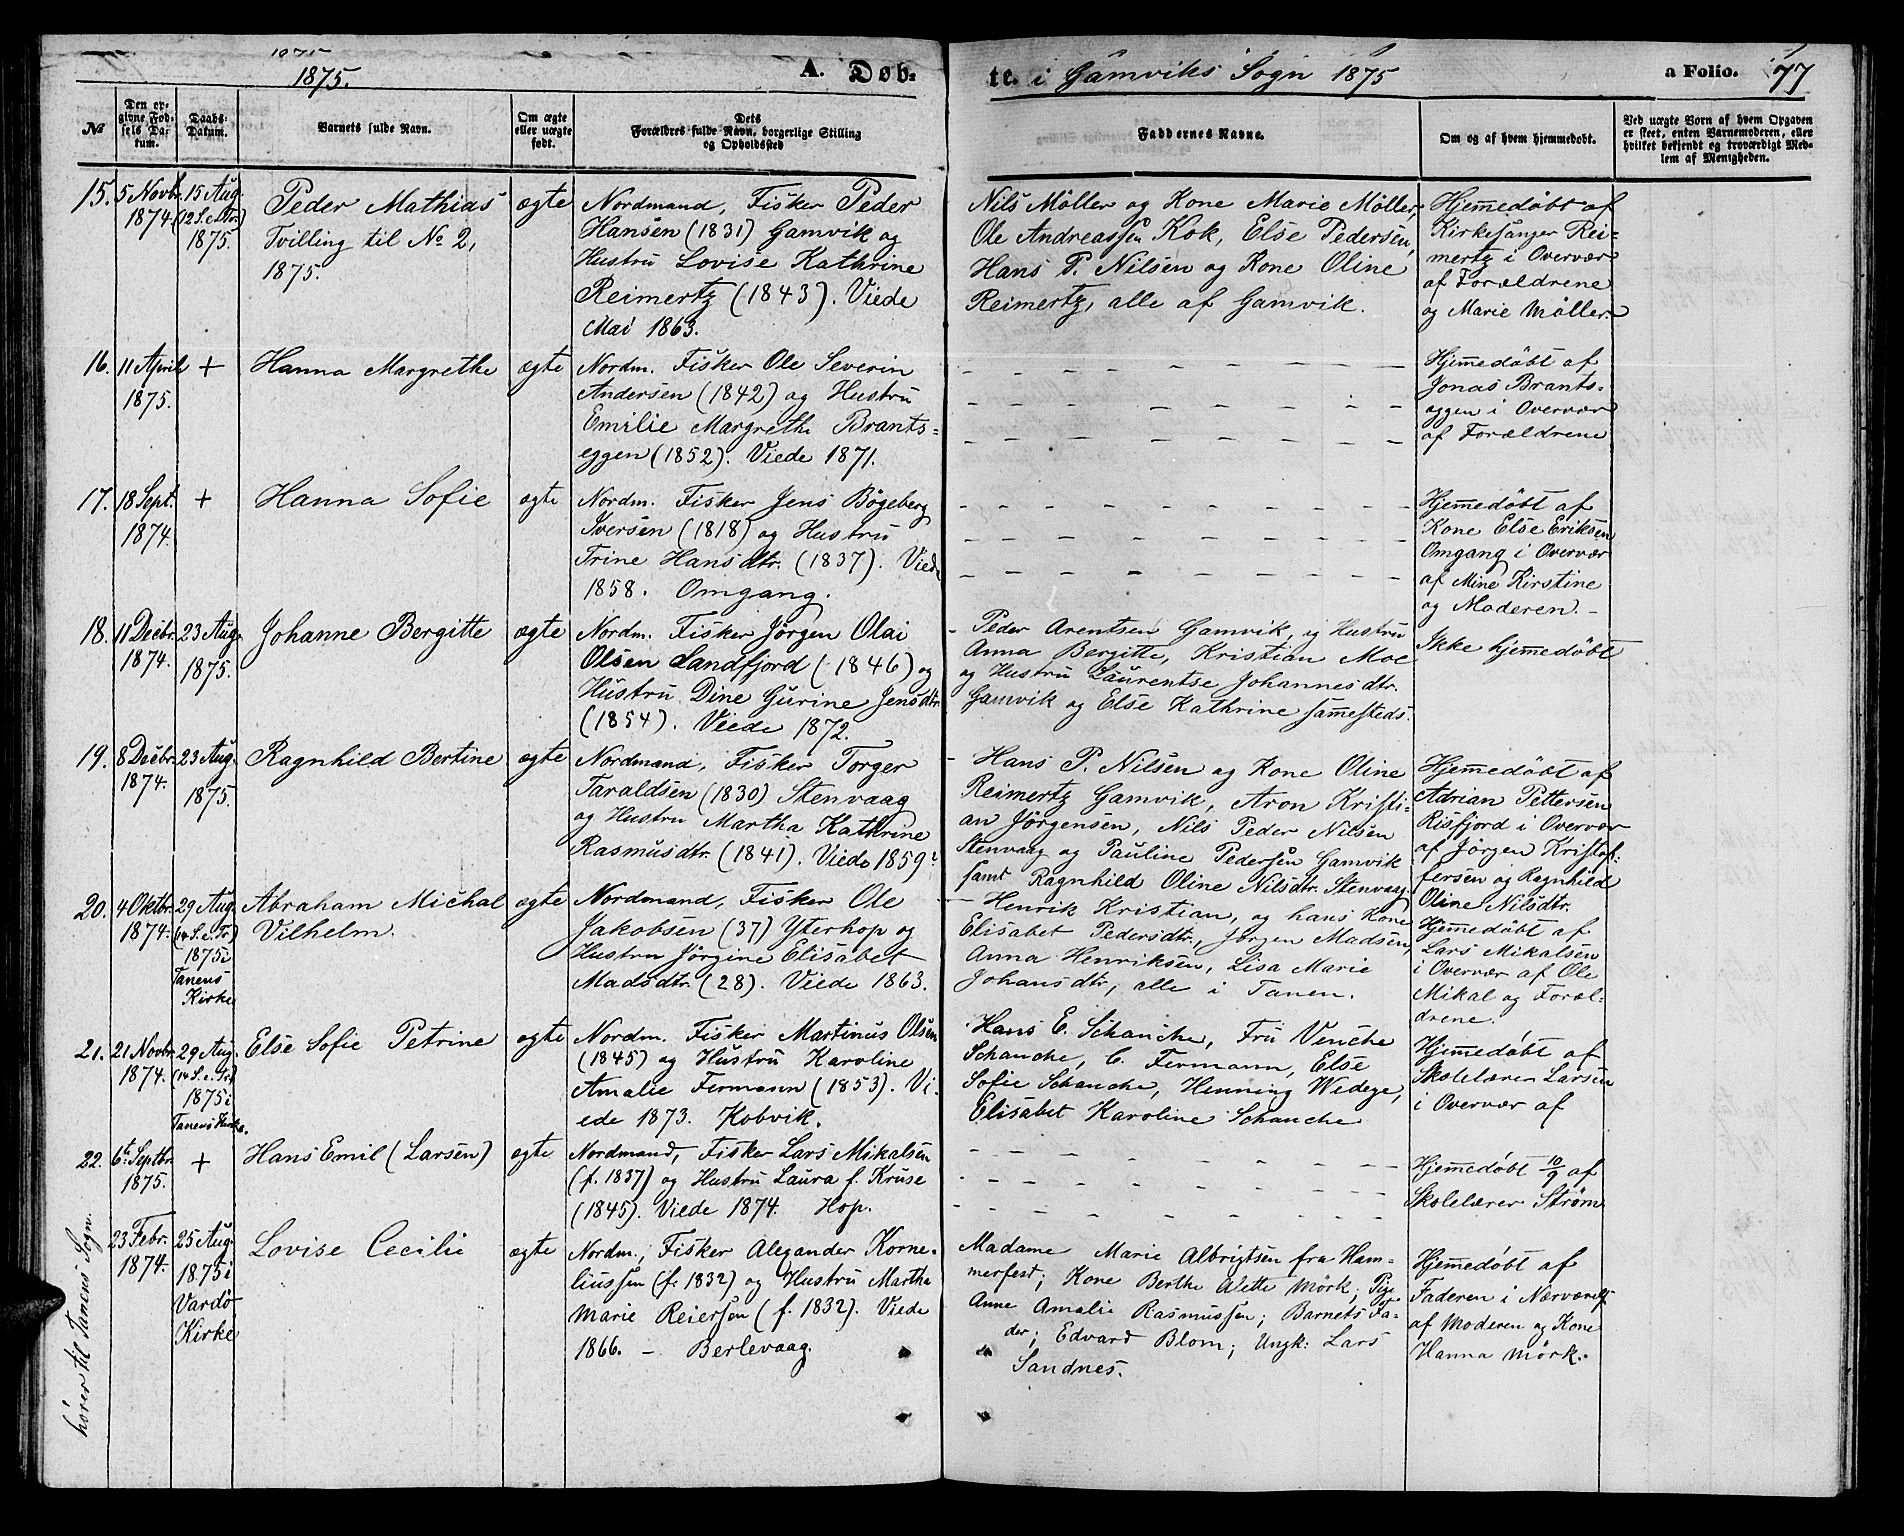 1875.
A. Døb-
te. i Gamviks Sogn 1875
a Folio. 77
№
Den ergivne Fødsels Datum.
Daabs-Datum.
Barnets fulde Navn.
Om ægte eller uægte født.
Dets Forældres fulde Navn, borgerlige Stilling og Opholdssted
Faddernes Navne.
Om og af hvem hjemmedøbt.
Ved uægte Børn af hvem Opgaven er skeet, enten Barnemoderen, eller hvilket bekjendt og troværdigt Medlem af Menigheden.
15.
5 Novbr.
1874
15 Aug.
(12 S. e. Tr.)
1875.
Peder Mathias
Tvilling til № 2,
1875.
ægte
Nordmand, Fisker Peder
Hansen (1831) Gamvik og
Hustru Lovise Kathrine
Reimertz (1843). Viede
Mai 1863.
Nils Møller og Kone Marie Møller,
Ole Andreassen Kok, Else Pedersen,
Hans P. Nilsen og Kone Oline
Reimertz, alle af Gamvik.
Hjemmedøbt af
Kirkesanger Rei-
mertz i Overvær
af Forældrene
og Marie Møller.
16.
11 April
1875.
+
Hanna Margrethe
ægte
Nordm. Fisker Ole Severin
Andersen (1842) og Hustru
Emilie Margrethe Brants-
eggen (1852). Viede 1871.
Hjemmedøbt af
Jonas Brants-
eggen i Overvær
af Forældrene
17.
18 Sept.
1874.
+
Hanna Sofie
ægte
Nordm. Fisker Jens Bøgeberg
Iversen (1818) og Hustru
Trine Hansdtr. (1837). Viede
1858. Omgang.
Hjemmedøbt af
Kone Else Eriksen
Omgang i Overvær
af Mine Kirstine
og Moderen. -
18.
11 Decbr.
1874.
23 Aug.
1875.
Johanne Bergitte
ægte
Nordm. Fisker Jørgen Olai
Olsen Sandfjord (1846) og
Hustru Dine Gurine Jensdtr.
(1854). Viede 1872.
- Peder Arentsen Gamvik, og Hustru
Anna Bergitte, Kristian Moe
og Hustru Laurentse Johannesdtr.
Gamvik og Else Kathrine sammesteds.
Ikke hjemmedøbt
19.
8 Decbr.
1874.
23 Aug.
1875.
Ragnhild Bertine
ægte
Nordmand, Fisker Torger
Taraldsen (1830) Stenvaag
og Hustru Martha Kathrine
Rasmusdtr. (1841). Viede 1859.
- Hans P. Nilsen og Kone Oline
Reimertz Gamvik, Aron Kristi-
an Jørgensen, Nils Peder Nilsen
Stenvaag og Pauline Pedersen Gamvik
samt Ragnhild Oline Nilsdtr. Stenvaag.
Hjemmedøbt af
Adrian Pettersen
Risfjord i Overvær
af Jørgen Kristof-
fersen og Ragnhild
Oline Nilsdtr.
20.
4 Oktbr.
1874.
29 Aug.
(14 S. e. Tr.)
1875 i
Tanens
Kirke
Abraham Michal
Vilhelm.
ægte
Nordmand, Fisker Ole
Jakobsen (37) Yterhop og
Hustru Jørgine Elisabet
Madsdtr. (28). Viede 1863.
- Henrik Kristian, og hans Kone
Elisabet Pedersdtr., Jørgen Madsen,
Anna Henriksen, Lisa Marie
Johansdtr, alle i Tanen.
Hjemmedøbt af
Lars Mikalsen
i Overvær af Ole
Mikal og Foræl-
drene.
21.
21 Novbr.
1874.
29 Aug.
(14 S. e. Tr.)
1875 i
Tanens Kirke.
Else Sofie Petrine
ægte
Nordm. Fisker Martinus Olsen
(1845) og Hustru Karoline
Amalie Fermann (1853). Vi-
ede 1873. Kobvik.
Hans E. Schanche, Fru Venche
Schanche, C. Fermann, Else
Sofie Schanche, Henning Widege,
Elisabet Karoline Schanche
Hjemmedøbt af
Skolelærer Larsen
i Overvær af
22.
6te Septbr.
1875.
+
Hans Emil (Larsen)
ægte
Nordmand, Fisker Lars Mikalsen
(f. 1837) og Hustru Laura f. Kruse
(1845). Viede 1874. Hop.
Hjemmedøbt 10/9 af
Skolelærer Strøm
hører til Tanens Sogn.
23 Febr.
1874.
25 Aug.
1875 i
Vardø
Kirke
Lovise Cecilie
ægte
Nordm., Fisker Alexander Korne-
liussen (f. 1832) og Hustru Martha
Marie Reiersen (f. 1832). Viede
1866. - Berlevaag.
Madame Marie Albrigtsen fra Ham-
merfest; Kone Berthe Alette Mørk; Pige
Anne Amalie Rasmussen; Barnets Fa-
der; Edvard Blom; Ungk: Lars
Sandnes.
Hjemmedøbt af
Faderen i Nærværelse
af Moderen og Kone
Hanna Mørk.